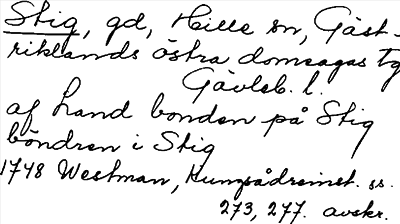 Stig, gd, Hille sn, Gäst-
riklands östra domsagas tg
Gävleb. l.
af hand bonden på Stig
böndren i Stig
1748 Westman, Kungsådreinst. ss.
273, 277. avskr.